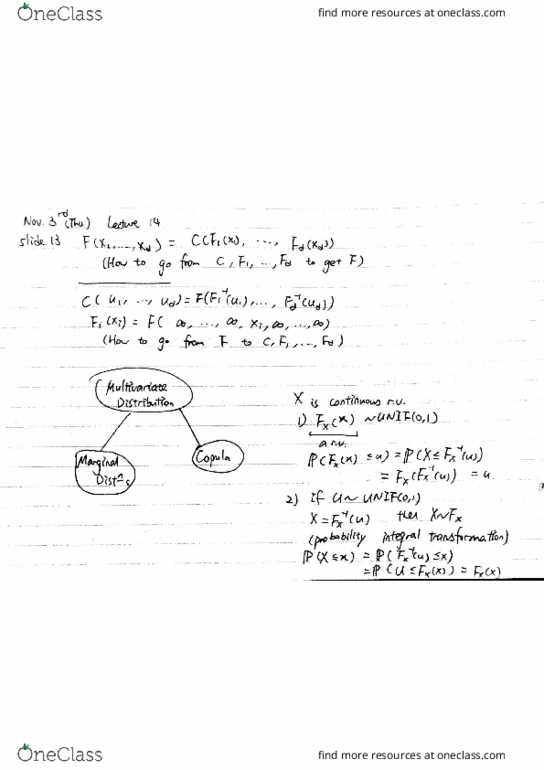 OneClass
find more resources at oneclass.com
Nov. 3rd (Thu.) Lecture 14
slide 13 F(x1, ..., xd) = C(F1(x1), ..., Fd(xd))
(How to go from C, F1, ..., Fd to get F)
C(u1, ..., ud) = F(F1⁻¹(u1), ..., Fd⁻¹(ud))
Fi(xi) = F(∞, ..., ∞, xi, ∞, ..., ∞)
(How to go from F to C, F1, ..., Fd)
Multivariate
Distribution
Marginal
Distⁿs
Copula
X is continuous r.v.
1) Fx(x) ~ UNIF(0,1)
a r.v.
ℙ(Fx(x) ≤ u) = ℙ(X ≤ Fx⁻¹(u))
= Fx(Fx⁻¹(u)) = u.
2) if U ~ UNIF(0,1)
X = Fx⁻¹(u) then X~Fx
(probability integral transformation)
ℙ(X ≤ x) = ℙ(Fx⁻¹(u) ≤ x)
= ℙ(U ≤ Fx(x)) = Fx(x)
OneClass
find more resources at oneclass.com